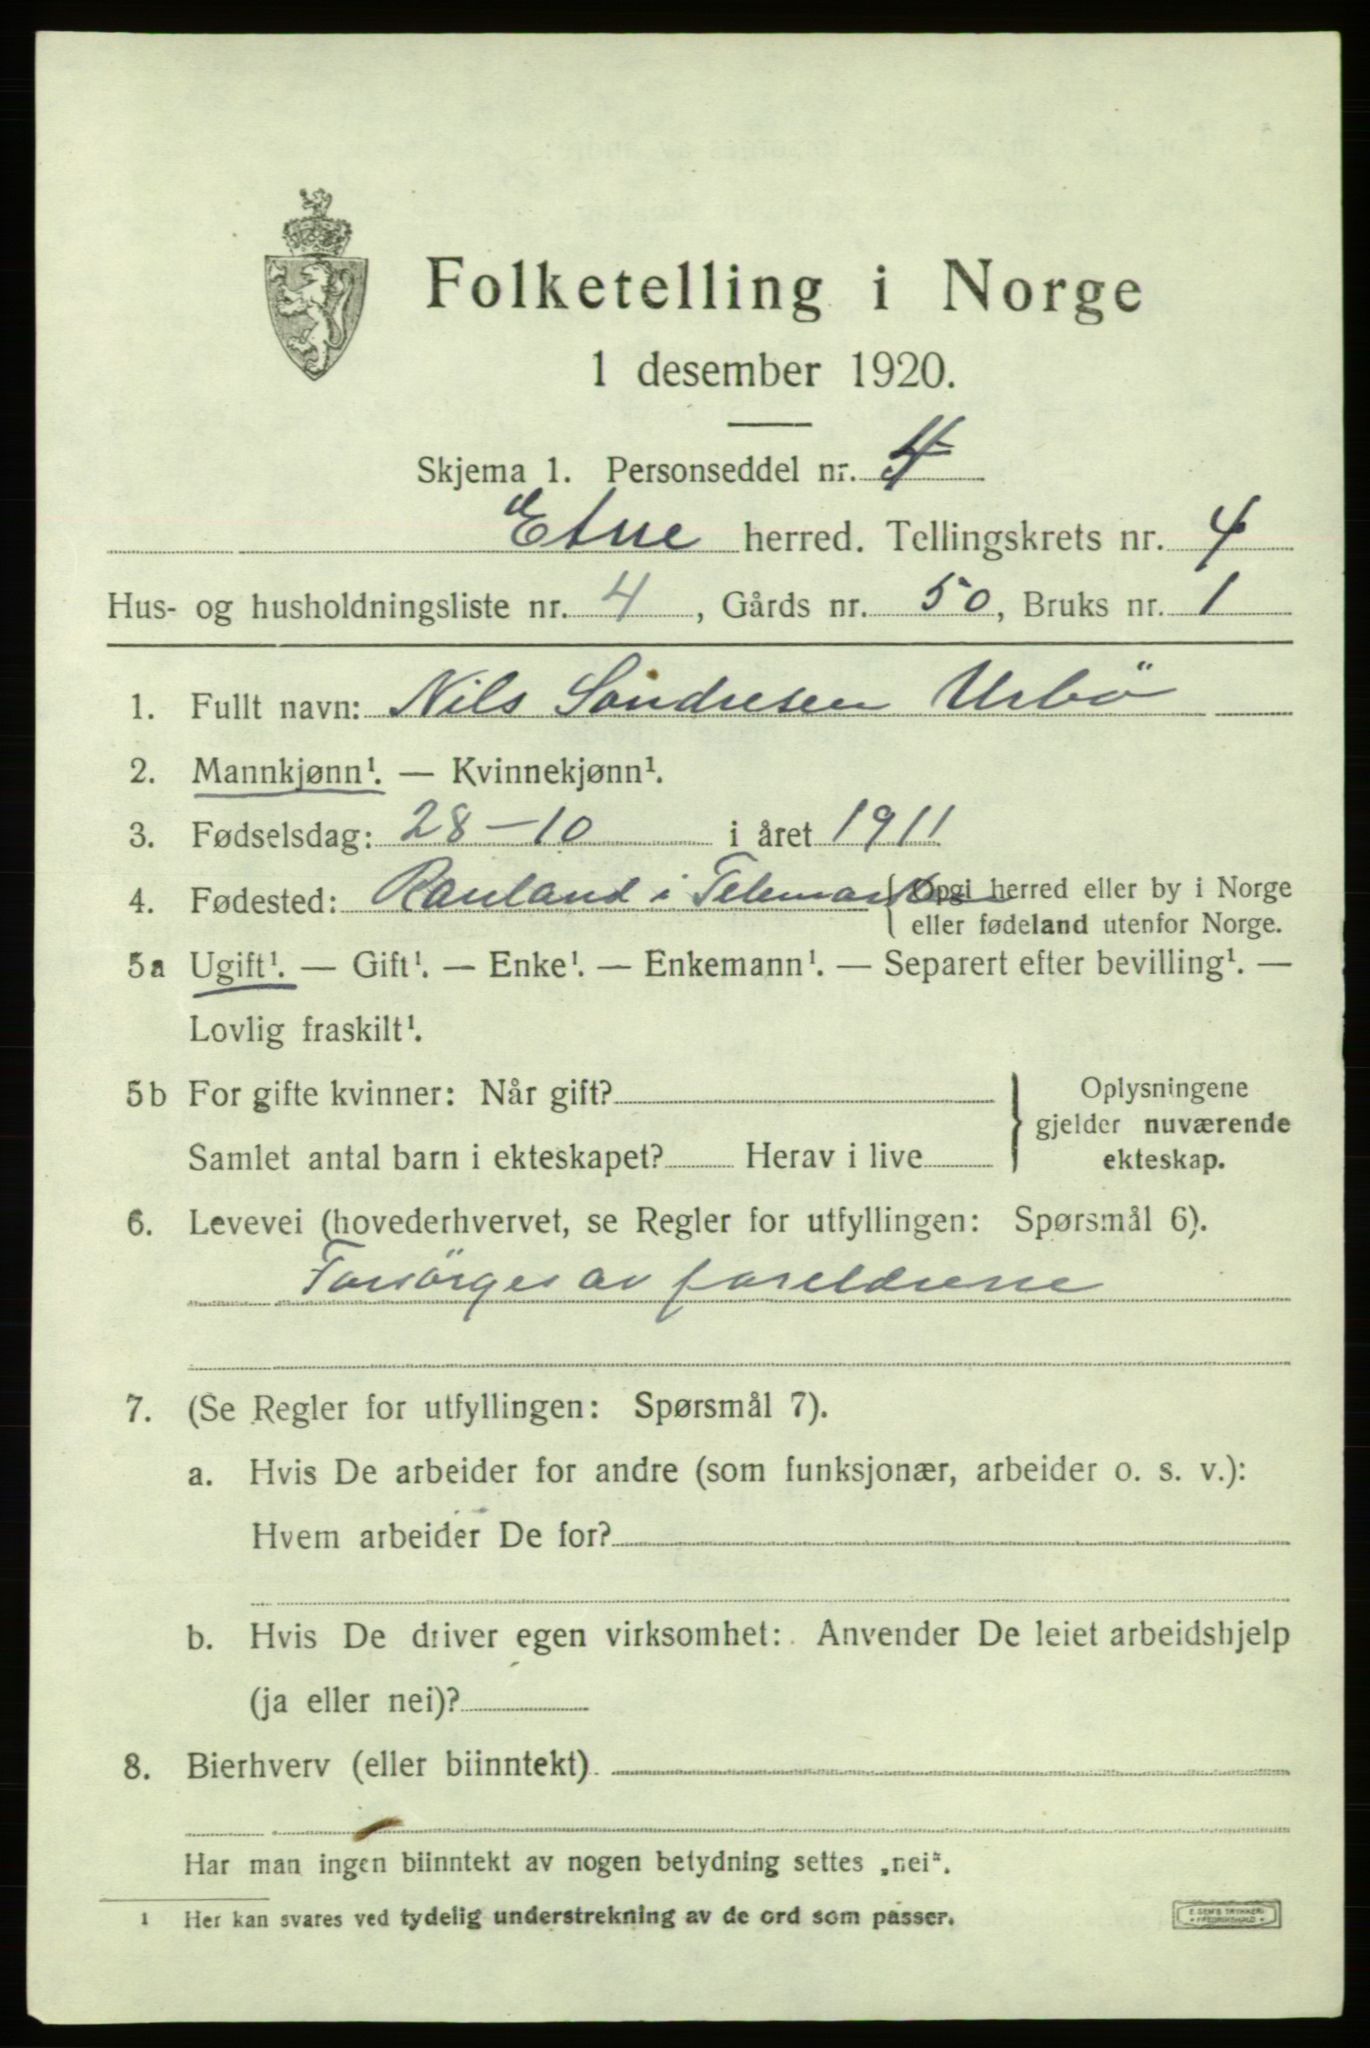 Folketelling i Norge
1 desember 1920.
Skjema 1. Personseddel nr. 4
Etne herred. Tellingskrets nr. 4
Hus- og husholdningsliste nr. 4, Gårds nr. 50, Bruks nr. 1
1. Fullt navn: Nils Sondresen Urbö
2. Mannkjønn¹. — Kvinnekjønn¹.
3. Fødselsdag: 28-10 i året 1911
4. Fødested: Rauland i Telemarken { Opgi herred eller by i Norge
eller fødeland utenfor Norge.
5a Ugift¹. — Gift¹. — Enke¹. — Enkemann¹. — Separert efter bevilling¹. —
Lovlig fraskilt¹.
5b For gifte kvinner: Når gift?
Samlet antal barn i ekteskapet? Herav i live
} Oplysningene
gjelder nuværende
ekteskap.
6. Levevei (hovederhvervet, se Regler for utfyllingen: Spørsmål 6).
Forsörges av foreldrene
7. (Se Regler for utfyllingen: Spørsmål 7).
a. Hvis De arbeider for andre (som funksjonær, arbeider o. s. v.):
Hvem arbeider De for?
b. Hvis De driver egen virksomhet: Anvender De leiet arbeidshjelp
(ja eller nei)?
8. Bierhverv (eller biinntekt)
Har man ingen biinntekt av nogen betydning settes „nei“.
1 Her kan svares ved tydelig understrekning av de ord som passer.
E. SEM'S TRYKKERI
FREDRIKSHALD